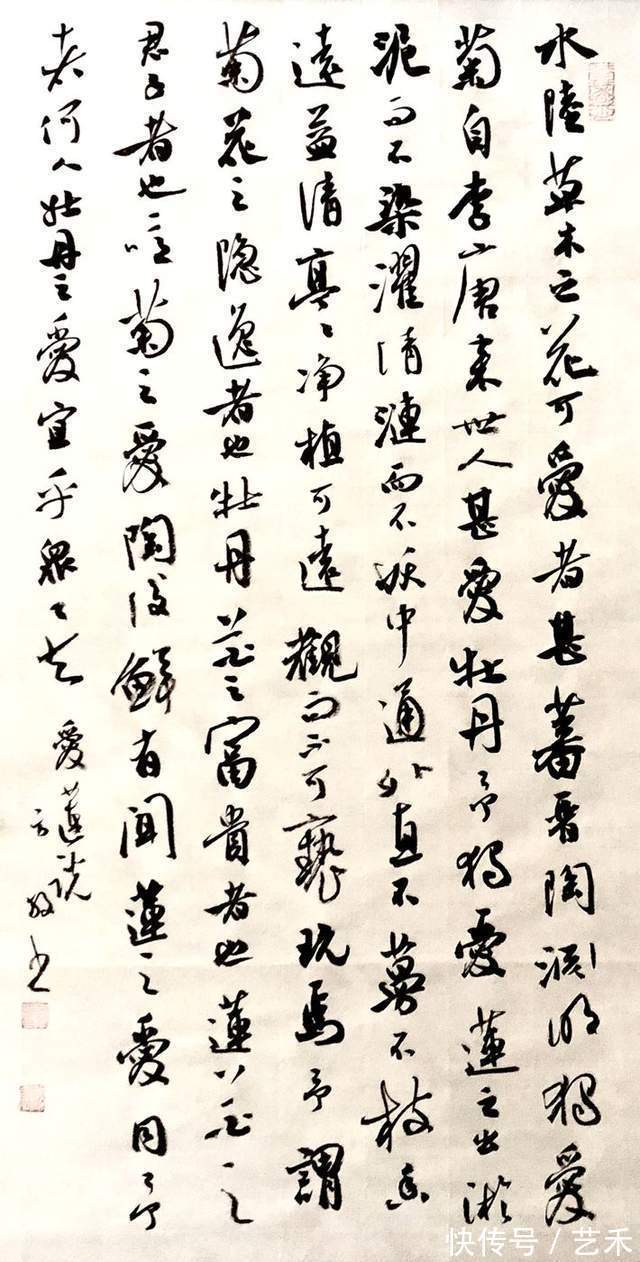 水陸草木之花可愛者甚蕃晉陶淵明獨愛
菊自李唐來世人甚愛牡丹予獨愛蓮之出淤
泥而不染濯清漣而不妖中通外直不蔓不枝香
遠益清亭々净植可遠觀而不可褻玩焉予謂
菊花之隐逸者也牡丹花之富貴者也蓮花之
君子者也噫菊之愛陶後鮮有聞蓮之愛同予
者何人牡丹之愛宜乎衆々矣
愛蓮説
书
快传号 / 艺禾